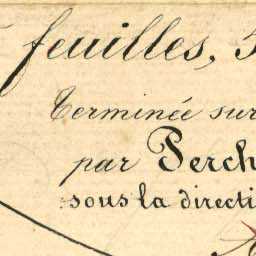 feuilles, 5
Terminée sur
par Perch
sous la directi